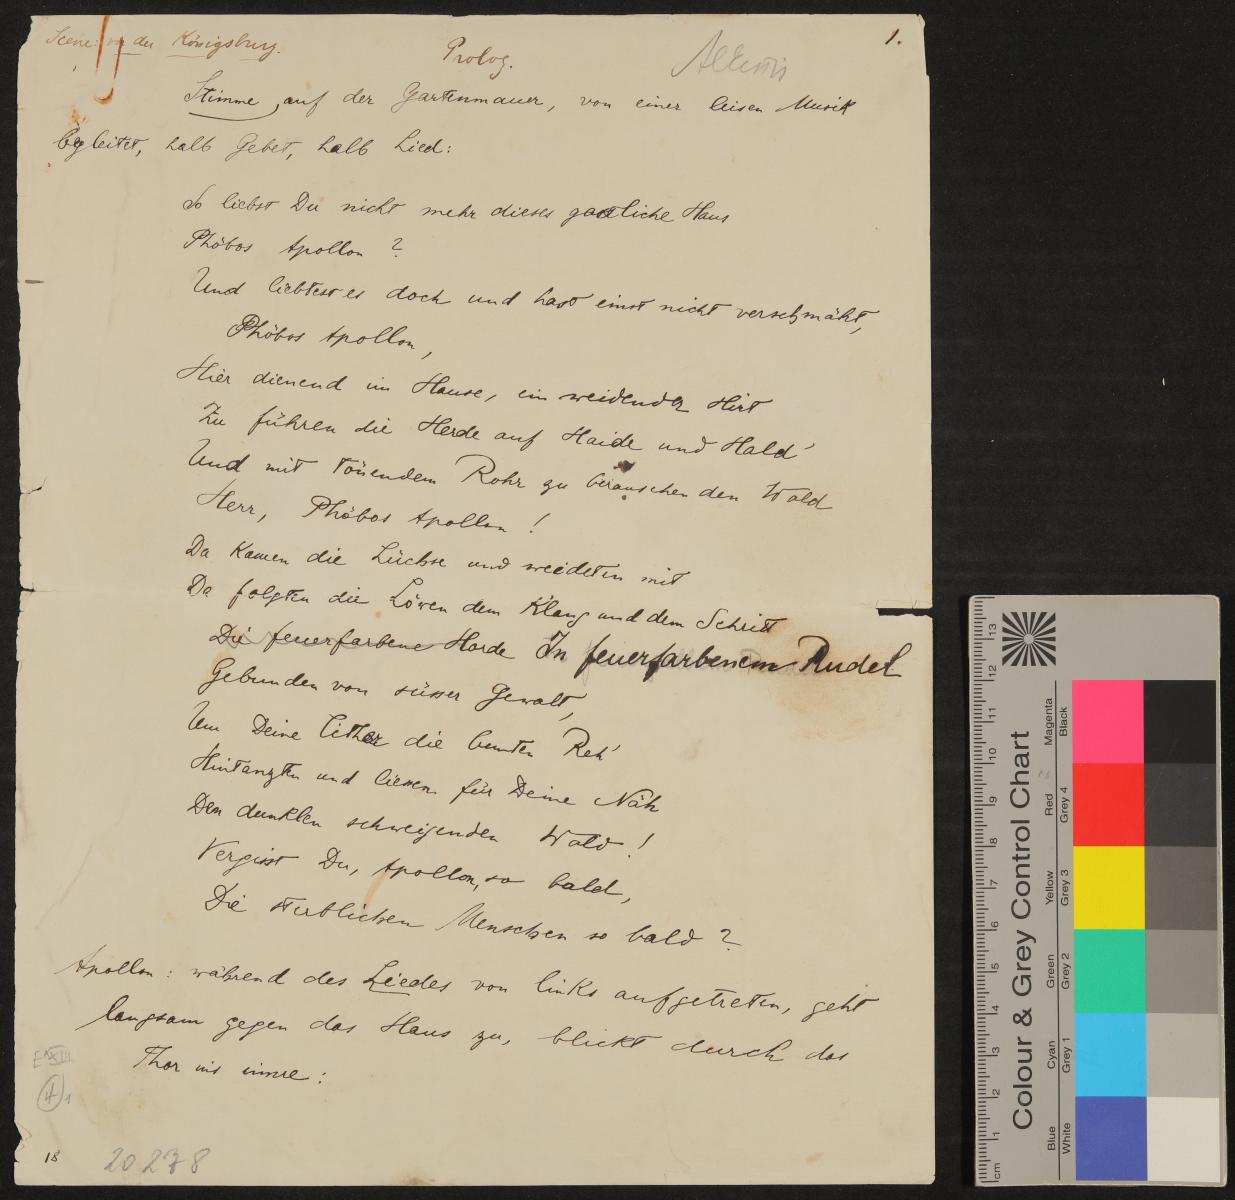 Scene: vor der Königsburg.
Prolog.
Alkestis
1.
Stimme, auf der Gartenmauer, von einer leisen Musik
begleitet, halb Gebet, halb Lied:
So liebst Du nicht mehr dieses gastliche Haus
Phöbos Apollon?
Und liebtest es doch und hast einst nicht verschmäht,
Phöbos Apollon,
Hier dienend im Hause, ein weidender Hirt
Zu führen die Herde auf Haide und Hald'
Und mit tönendem Rohr zu berauschen den Wald
Herr, Phöbos Apollon!
Da kamen die Lüchse und weideten mit
Da folgten die Löwen dem Klang und dem Schritt
Die feuerfarbene Horde In feuerfarbenem Rudel
Gebunden von süsser Gewalt,
Um Deine Cither die bunten Reh'
Hintanzten und liessen für Deine Näh
Den dunklen schweigenden Wald!
Vergisst Du, Apollon, so bald,
Die sterblichen Menschen so bald?
Apollon: während des Liedes von links aufgetreten, geht
langsam gegen das Haus zu, blickt durch das
Thor ins innre:
E XIII
4 1
18
20278
Colour & Grey Control Chart
Blue Cyan Green Yellow Red Magenta
White Grey 1 Grey 2 Grey 3 Grey 4 Black
cm 1 2 3 4 5 6 7 8 9 10 11 12 13